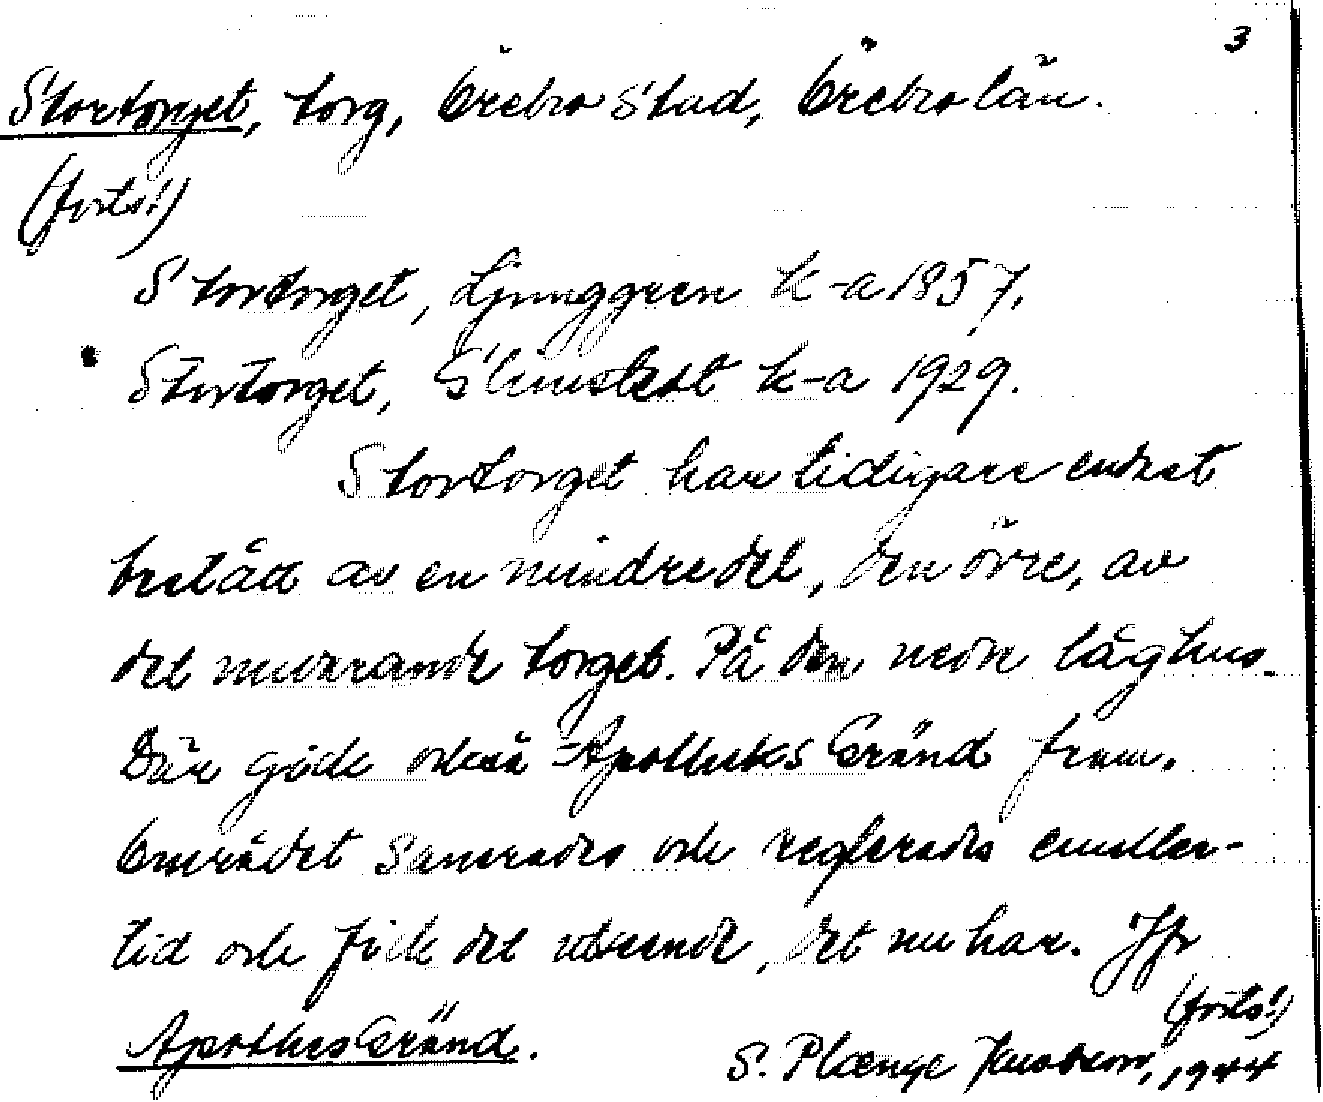 3
Stortorget, torg, Örebro Stad, Örebro län.
(forts!)
Stortorget, Ljunggren k-a 1857.
Stortorget, k-a 1929.
Stortorget har tidigare endast
bestått av en mindre del, den övre, av
det nuvarande torget. På den nedre låg hus.
Där gick också Apotheks Gränd fram.
Området sanerades och reglerades emeller-
tid och fick det utseende, det nu har. Jfr
Apotheks Gränd.
(forts!)
S. Plænge Jacobson, 1944